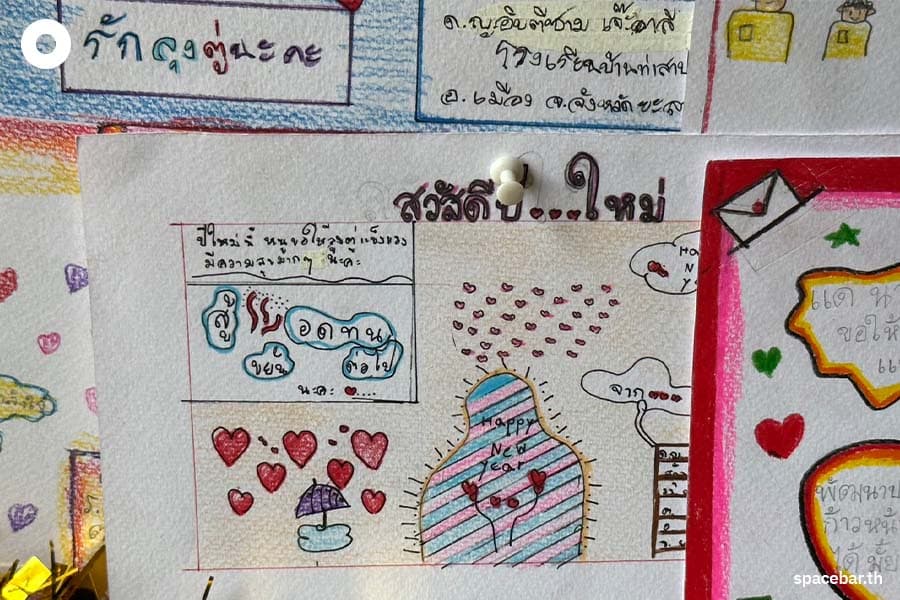 รักลุงตู่นะคะ
ด.ญ.อินตีซาม
โรงเรียนบ้านท่าสาป
อ.เมือง จ.จังหวัดยะลา
สวัสดีปี...ใหม่
ปีใหม่นี้ หนูขอให้ลุงตู่แข็งแรง
มีความสุขมากๆ นะคะ
สู้ๆ อดทน
ขยัน ต่อไป
นะคะ
Happy
New
Year
จาก
แด่
ขอให้
พัฒนา
ก้าวหน้า
ได้
spacebar.th